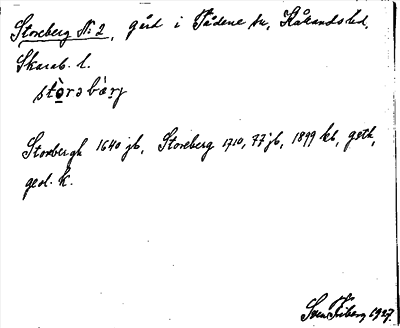 Storeberg No. 2, gård i Tådene sn, Kåkands hd,
Skarab. l.
stòrəbæ̀rj
Storebergh 1640 jb, Storeberg 1710, 77 jb, 1899 kb, geth,
geol. k.
Sven Friberg 1927.